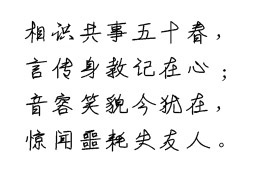 相识共事五十春，
言传身教记在心；
音容笑貌今犹在，
惊闻噩耗失友人。